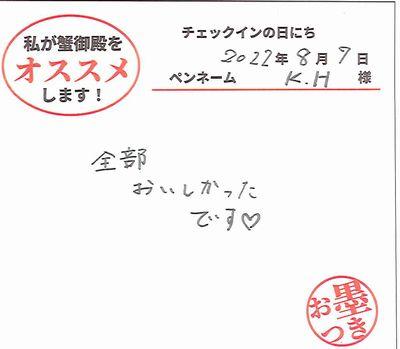 私が蟹御殿を
オススメ
します！
チェックインの日にち
2022年8月9日
ペンネーム K.H 様
全部
おいしかった
です♡
お墨
つき